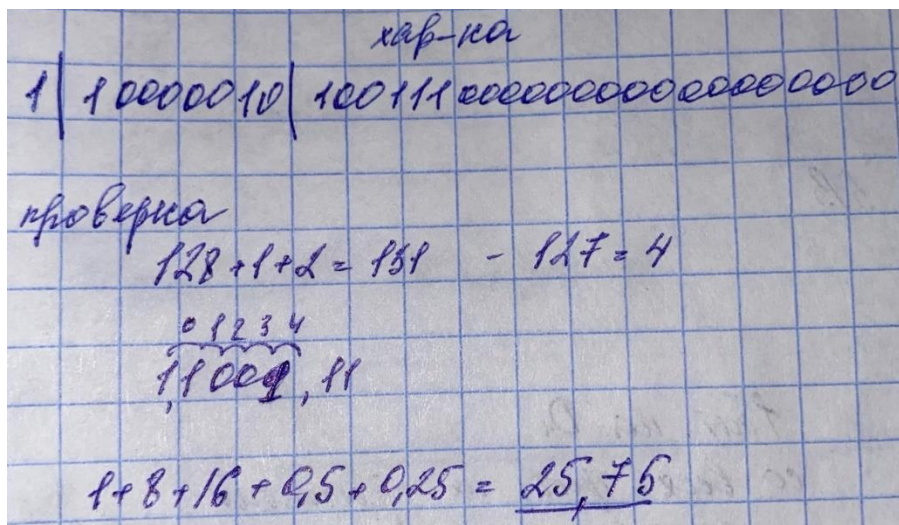 хар-ка
1| 10000010| 10011100000000000000000
проверка
128+1+2 = 131 - 127 = 4
0 1 2 3 4
1,1001,11
1+8+16+0,5+0,25 = 25,75